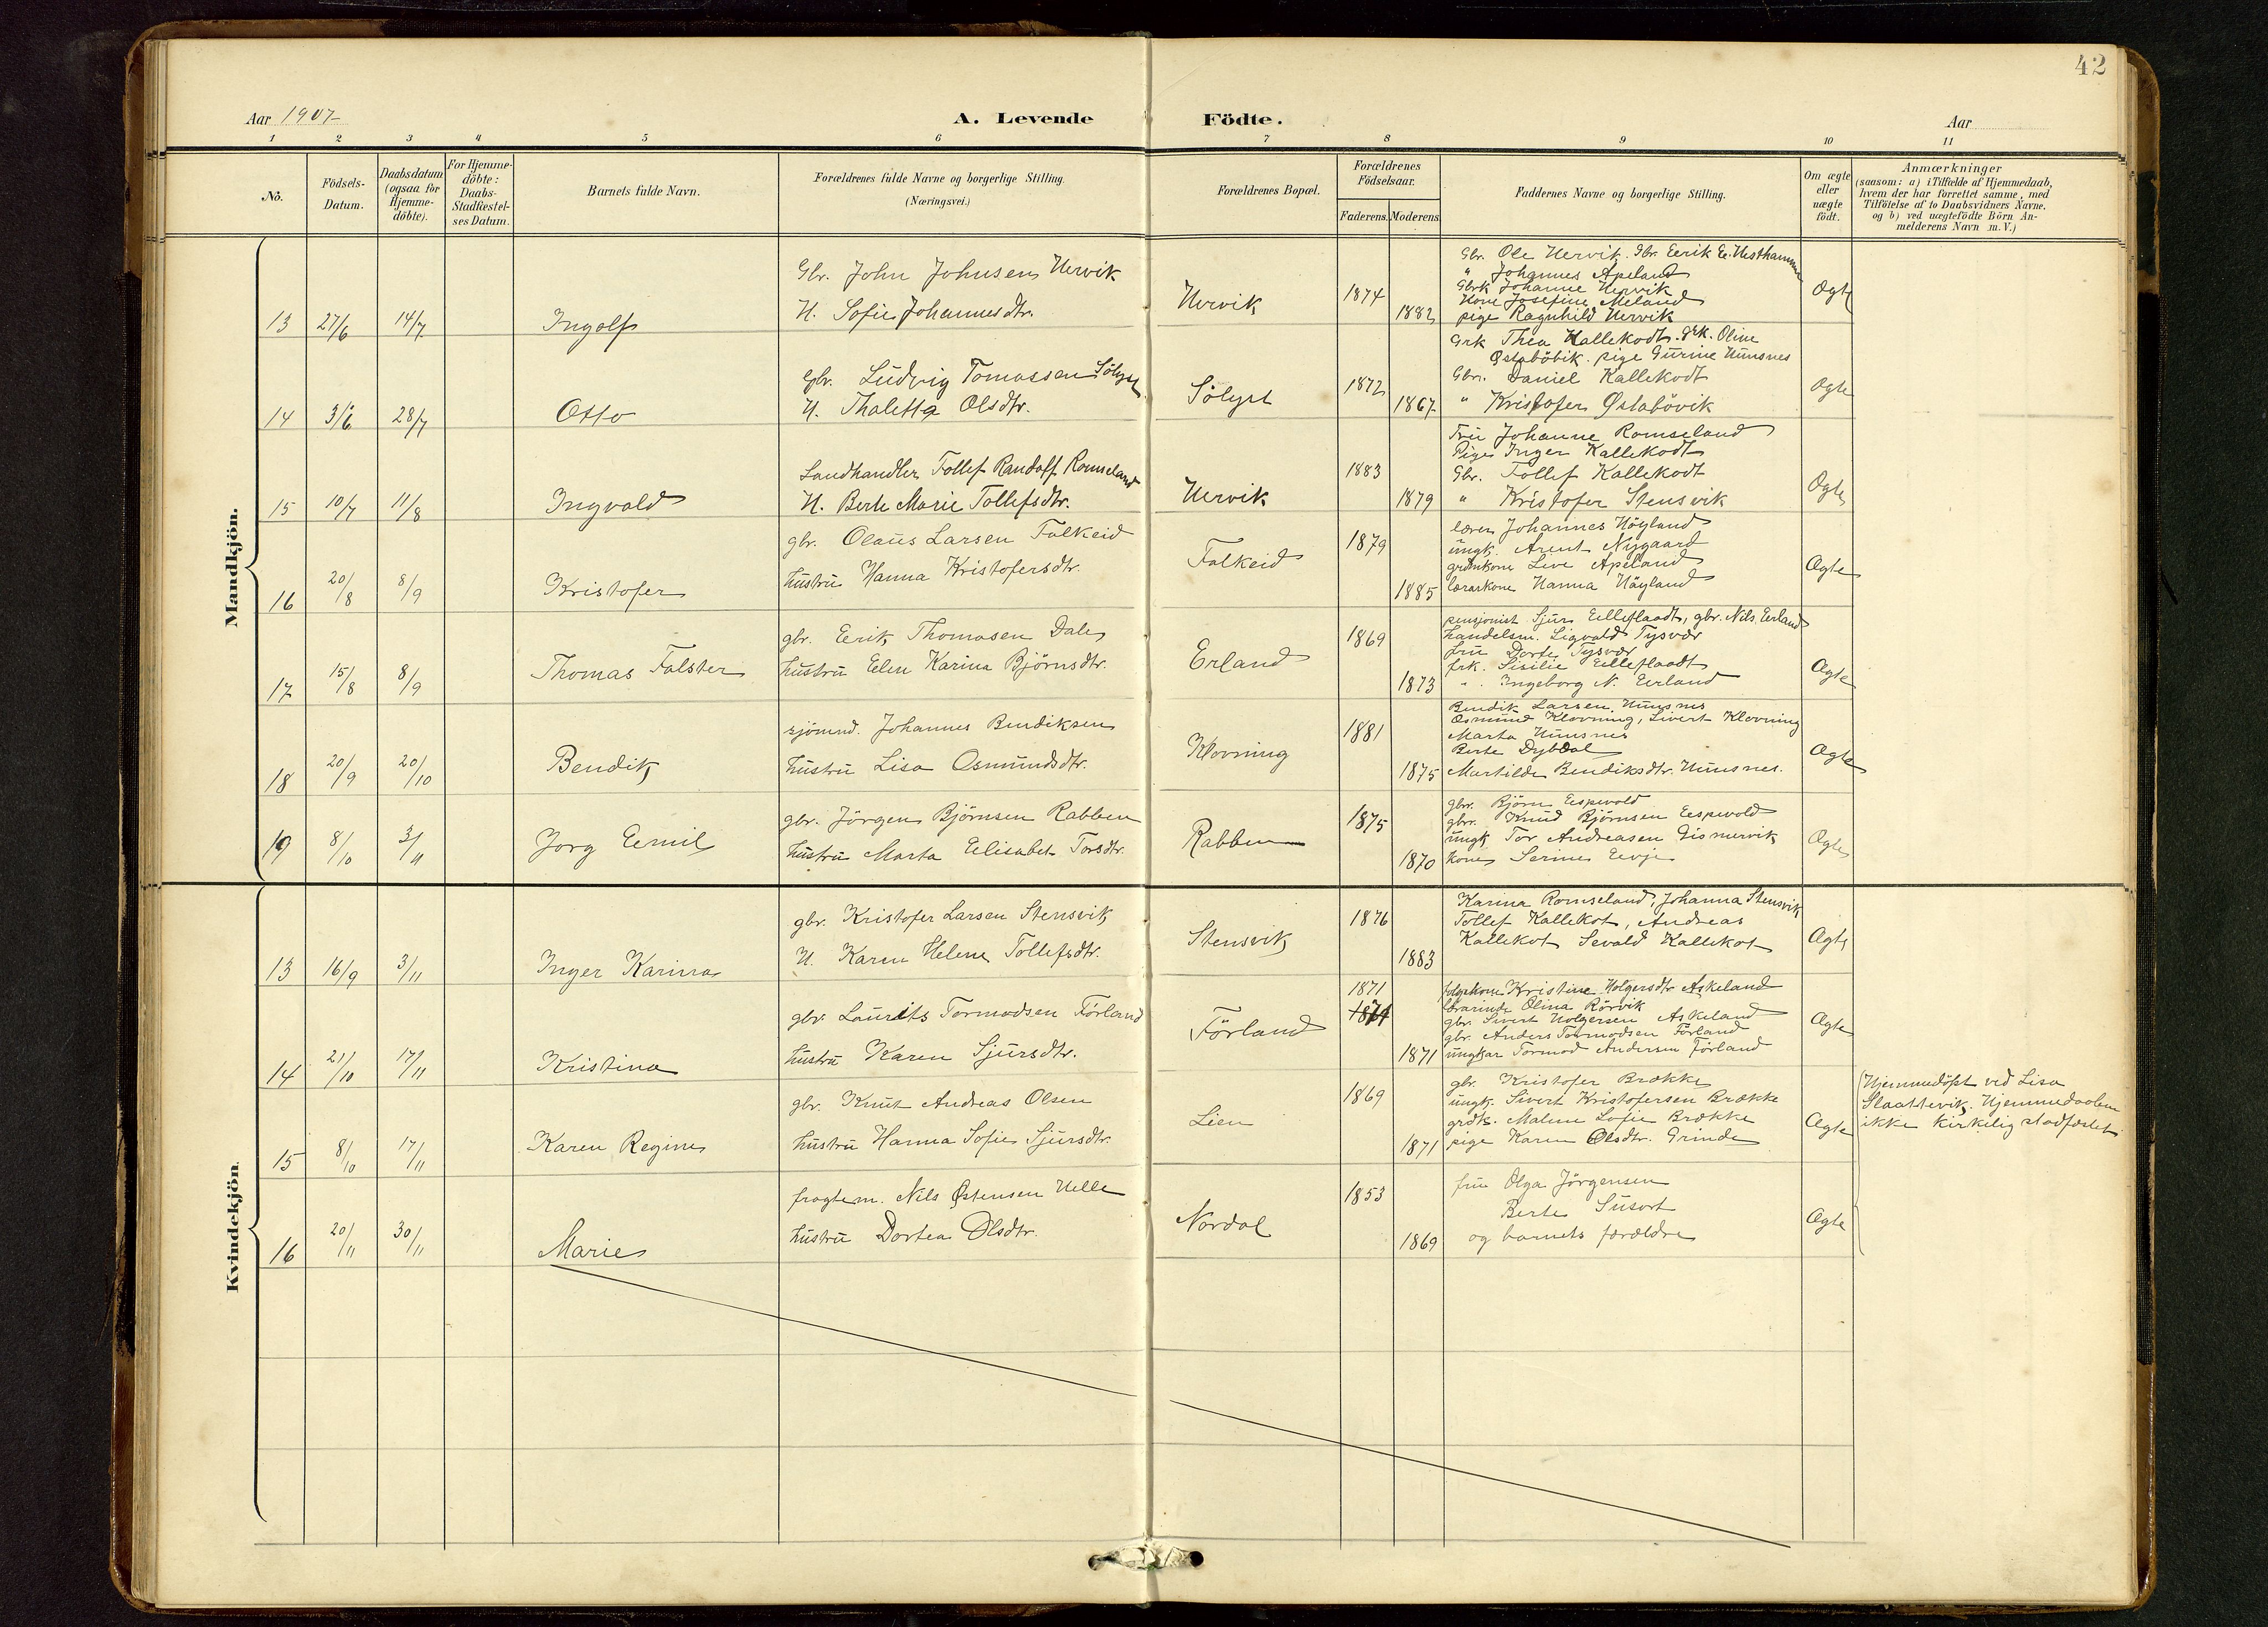 42
Aar 1907
A. Levende Födte.
Aar
1 2 3 4 5 6 7 8 9 10 11
No.
Födsels-
Datum.
Daabsdatum
(ogsaa for
Hjemme-
döbte).
For Hjemme-
döbte:
Daabs-
Stadfæstel-
ses Datum.
Barnets fulde Navn.
Forældrenes fulde Navne og borgerlige Stilling.
(Næringsvei.)
Forældrenes Bopæl.
Forældrenes
Födselsaar.
Faderens. Moderens
Faddernes Navne og borgerlige Stilling.
Om ægte
eller
uægte
födt.
Anmærkninger
(saasom: a) i Tilfælde af Hjemmedaab,
hvem der har forrettet samme, med
Tilföielse af to Daabsvidners Navne,
og b) ved uægtefödte Börn An-
melderens Navn m. V.)
Mandkjön.
13 27/6 14/7 Ingolf
Gbr. John Johnsen Hervik
H. Sofie Johannesdtr.
Hervik
1874
1882
Gbr. Ole Hervik. Gbr. Eerik Ee. Vesthammer
" Johannes Apeland
Gbrk Johanne Hervik
Kone Josefine Meland
pige Ragnhild Hervik
Ægte
14 3/6 28/7 Otto
Gbr. Ludvig Tomassen Sölyst
H. Thaletta Olsdtr.
Sölyst
1872
1867
Grk Thea Kallekodt. grk. Oline
Østabövik. pige Gurine Hunsnes
Gbr. Daniel Kallekodt
" Kristofer Østabövik
Ægte
15 10/7 11/8 Ingvald
Landhandler Tollef Randolf Romseland
H. Berte Marie Tollefsdtr.
Hervik
1883
1879
Fru Johanne Romseland
Pige Inger Kallekodt
Gbr. Tollef Kallekodt
" Kristofer Stensvik
Ægte
16 20/8 8/9 Kristofer
gbr. Olaus Larsen Falkeid
hustru Hanna Kristofersdtr.
Falkeid
1879
1885
lærer Johannes Höyland
ungk. Arent Nygaard
grdmkone Live Apeland
lærerkone Hanna Höyland
Ægte
17 15/8 8/9 Thomas Falster
gbr. Eerik Thomasen Dale
hustru Elen Karina Björnsdtr.
Erland
1869
1873
pensjonist Sjurs Eelleflaadt, gbr. Nils Eerland
handelsm. Sigvald Tysvær
fru Dorte Tysvær
frk. Sisilie Eelleflaadt
" Ingeborg N. Eerland
Ægte
18 20/9 20/10 Bendik
sjömnd. Johannes Bendiksen
hustru Lisa Osmundsdtr.
Klovning
1881
1875
Bendik Larsen Hunsnes
Osmund Klovning, Sivert Klovning
Marta Hunsnes
Berte Dybdal
Martilde Bendiksdtr. Hunsnes.
Ægte
19 8/10 3/11 Jorg Eemil
gbr. Jörgen Björnsen Rabben
hustru Marta Eelisabet Torsdtr.
Rabben
1875
1870
gbr. Björn Eespevold
gbr. Knud Björnsen Eespevold
ungk. Tor Andreasen Gismervik
kone Serine Eevje
Ægte
Kvindekjön.
13 16/9 3/11 Inger Karina
gbr. Kristofer Larsen Stensvik
H. Karen Helene Tollefsdtr.
Stensvik
1876
1883
Karina Romseland, Johanna Stensvik
Tollef Kallekot, Andreas
Kallekot Sevald Kallekot
Ægte
14 21/10 17/11 Kristina
gbr. Laurits Tormodsen Förland
hustru Karen Sjursdtr.
Förland
1871
1871
Kristine Holgersdtr Askeland
lærarinde Olina Rörvik
gbr. Sivert Holgersen Askeland
gbr. Anders Tormodsen Förland
ungkar Tormod Andersen Förland
Ægte
15 8/10 17/11 Karen Regine
gbr. Knut Andreas Olsen
hustru Hanna Sofie Sjursdtr.
Lien
1869
1871
gbr. Kristofer Brække
ungk. Sivert Kristofersen Brække
grdk. Malene Sofie Brække
pige Karen Olsdtr. Grinde
Ægte
Hjemmedöpt ved Lisa
Slaattevik. Hjemmedaaben
ikke kirkelig stadfæstet.
16 20/11 30/11 Marie
fragtem. Nils Østensen Helle
hustru Dortea Olsdtr.
Nordal
1853
1869
fru Olga Jörgensen
Berte Susort
og barnets forældre
Ægte